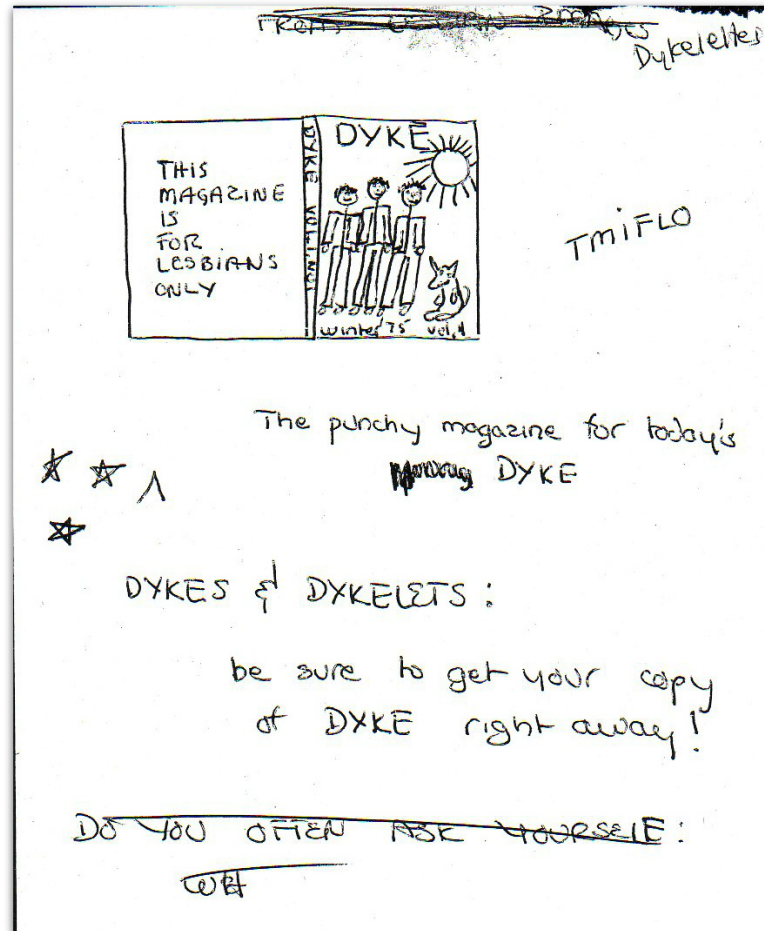 Dykelettes
THIS
MAGAZINE
IS
FOR
LESBIANS
ONLY
DYKE VOL.1 NO1
DYKE
winter '75 vol.1
TMIFLO
The punchy magazine for today's
DYKE
DYKES & DYKELETS:
be sure to get your copy
of DYKE right away!
DO YOU OFTEN ASK YOURSELF:
WH